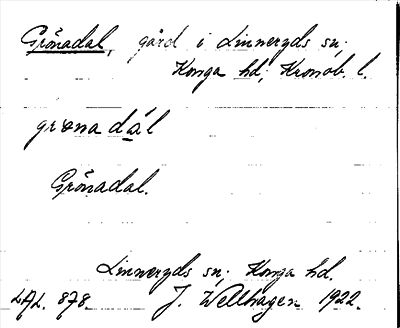 Grönadal, gård i Linneryds sn;
Konga hd; Kronob. l.
grønadál
Grönadal.
Linneryds sn; Konga hd.
LAL. 878. J. Wellhagen 1922.